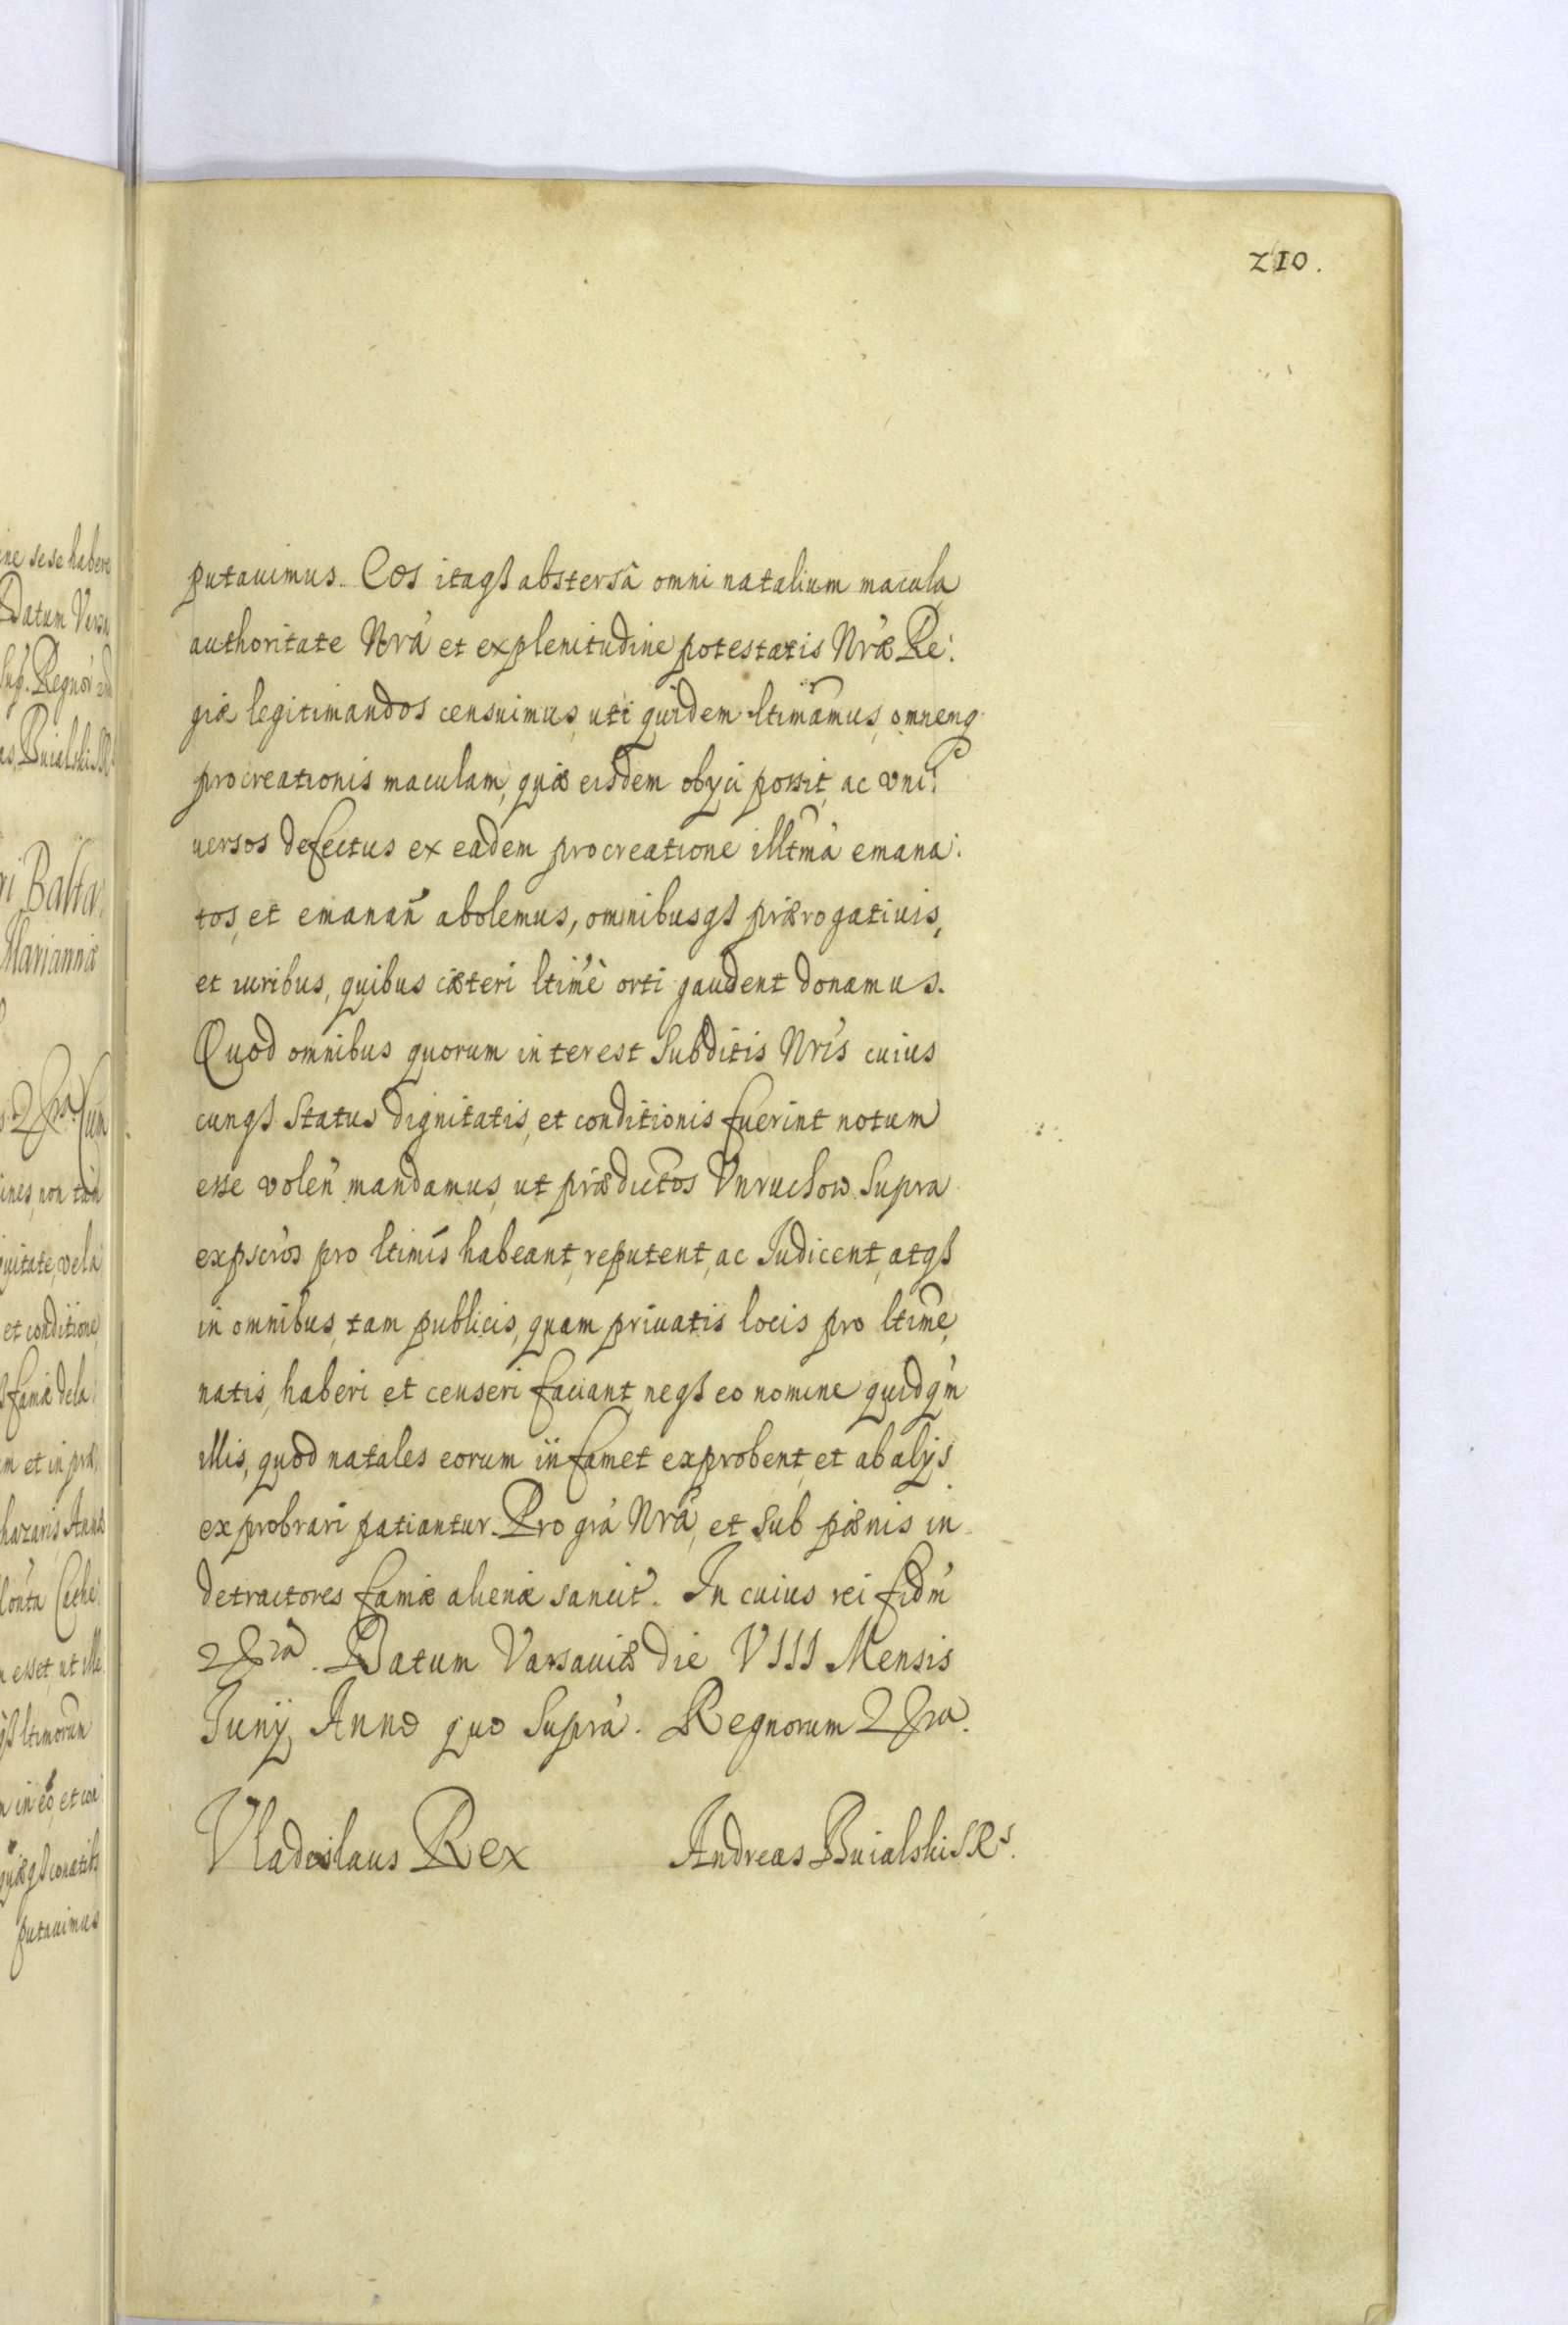 210.
putauimus. Eos itaqꝫ abstersâ omni natalium macula
authoritate Nrá et ex plenitudine potestatis Nræ Re:
giæ legitimandos censuimus, uti quidem ltimamus, omnenq
procreationis maculam, quæ eisdem obijci possit, ac vni:
uersos defectus ex eadem procreatione illtmá emana:
tos, et emanañ abolemus, omnibusqꝫ prærogatiuis,
et iuribus, quibus cæteri ltimè orti gaudent donamus.
Quod omnibus quorum interest Subditis Nris cuius
cunqꝫ Status dignitatis, et conditionis fuerint notum
esse voleñ mandamus, ut prædictos Vnruchow supra
expscros pro ltimis habeant, reputent, ac Iudicent, atqꝫ
in omnibus, tam publicis, quam priuatis locis pro ltime,
natis, haberi et censeri faciant, neqꝫ eo nomine quidqm
illis, quod natales eorum infamet exprobent, et ab alijs
exprobrari patiantur. Pro grá Nrá, et sub pænis in
detractores famæ alienæ sancit. In cuius rei fidm
Datum Varsauiæ die VIII Mensis
Iunij Anno quo Supra. Regnorum
Vladislaus Rex Andreas Buialski SRs.
ine sese habere
Datum Versa
sup. Regnor
as Buialski
ri Balta
Mariannæ
Cum
ines, non tam
uitate, vel a
et conditione
famæ dela
m et in præ
hazaris, Anna
esset, ut ille
ltimorum
in eo, et con
conatibs
putauimus